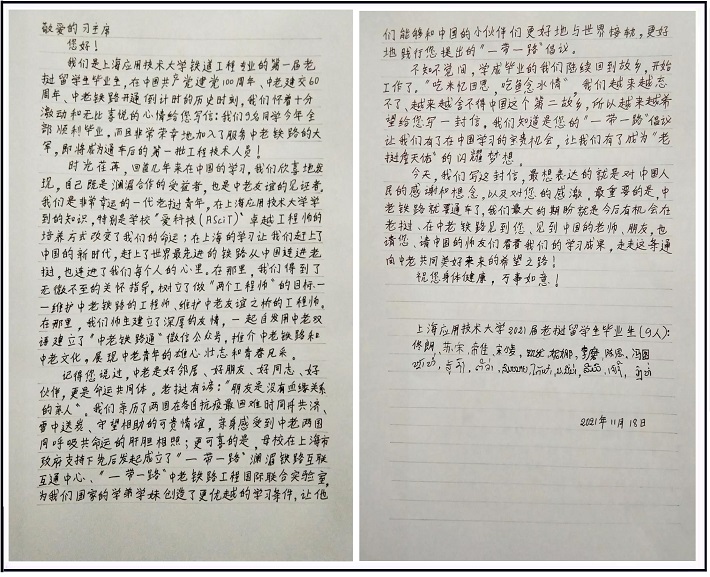 敬爱的习主席
您好！
我们是上海应用技术大学铁道工程专业的第一届老
挝留学生毕业生，在中国共产党建党100周年、中老建交60
周年、中老铁路开通倒计时的历史时刻，我们怀着十分
激动和无比喜悦的心情给您写信：我们9名同学今年全
部顺利毕业，而且非常荣幸地加入了服务中老铁路的大
军，即将成为通车后的第一批工程技术人员！
时光荏苒，回首几年来在中国的学习，我们欣喜地发
现，自己既是澜湄合作的受益者，也是中老友谊的见证者，
我们是非常幸运的一代老挝青年，在上海应用技术大学学
到的知识，特别是学校“爱科技（ASciT）”卓越工程师的
培养方式改变了我们的命运；在上海的学习让我们赶上了
中国的新时代，赶上了世界最先进的铁路从中国连进老
挝，也连进了我们每个人的心里。在那里，我们得到了
无微不至的关怀指导，树立了做“两个工程师”的目标一
一维护中老铁路的工程师、维护中老友谊之桥的工程师。
在那里，我们师生建立了深厚的友情，一起自发用中老双
语建立了“中老铁路通”微信公众号，推介中老铁路和
中老文化，展现中老青年的雄心壮志和青春风采。
记得您说过，中老是好邻居、好朋友、好同志、好
伙伴，更是命运共同体。老挝有谚：“朋友是没有血缘关系
的亲人”。我们亲历了两国在各自抗疫最困难时同舟共济、
雪中送炭、守望相助的可贵情谊，亲身感受到中老两国
同呼吸共命运的肝胆相照；更可喜的是，母校在上海市
政府支持下先后发起成立了“一带一路”澜湄铁路互联
互通中心、“一带一路”中老铁路工程国际联合实验室，
为我们国家的学弟学妹创造了更优越的学习条件，让他
们能够和中国的小伙伴们更好地与世界接轨，更好
地践行您提出的“一带一路”倡议。
不知不觉间，学成毕业的我们陆续回到故乡，开始
工作了。“吃米忆田恩，吃鱼念水情”，我们越来越忘
不了、越来越舍不得中国这个第二故乡，所以越来越希
望给您写一封信。我们知道是您的“一带一路”倡议
让我们有了在中国学习的宝贵机会，让我们有了成为“老
挝詹天佑”的闪耀梦想。
今天，我们写这封信，最想表达的就是对中国人
民的感谢和想念，以及对您的感激，最重要的是，中
老铁路就要通车了，我们最大的期盼就是今后有机会在
老挝、在中老铁路见到您、见到中国的老师、朋友，也
请您、请中国的师友们看看我们的学习成果，走走这条通
向中老共同美好未来的希望之路！
祝您身体健康，万事如意！
上海应用技术大学2021届老挝留学生毕业生（9人）：
2021年11月18日